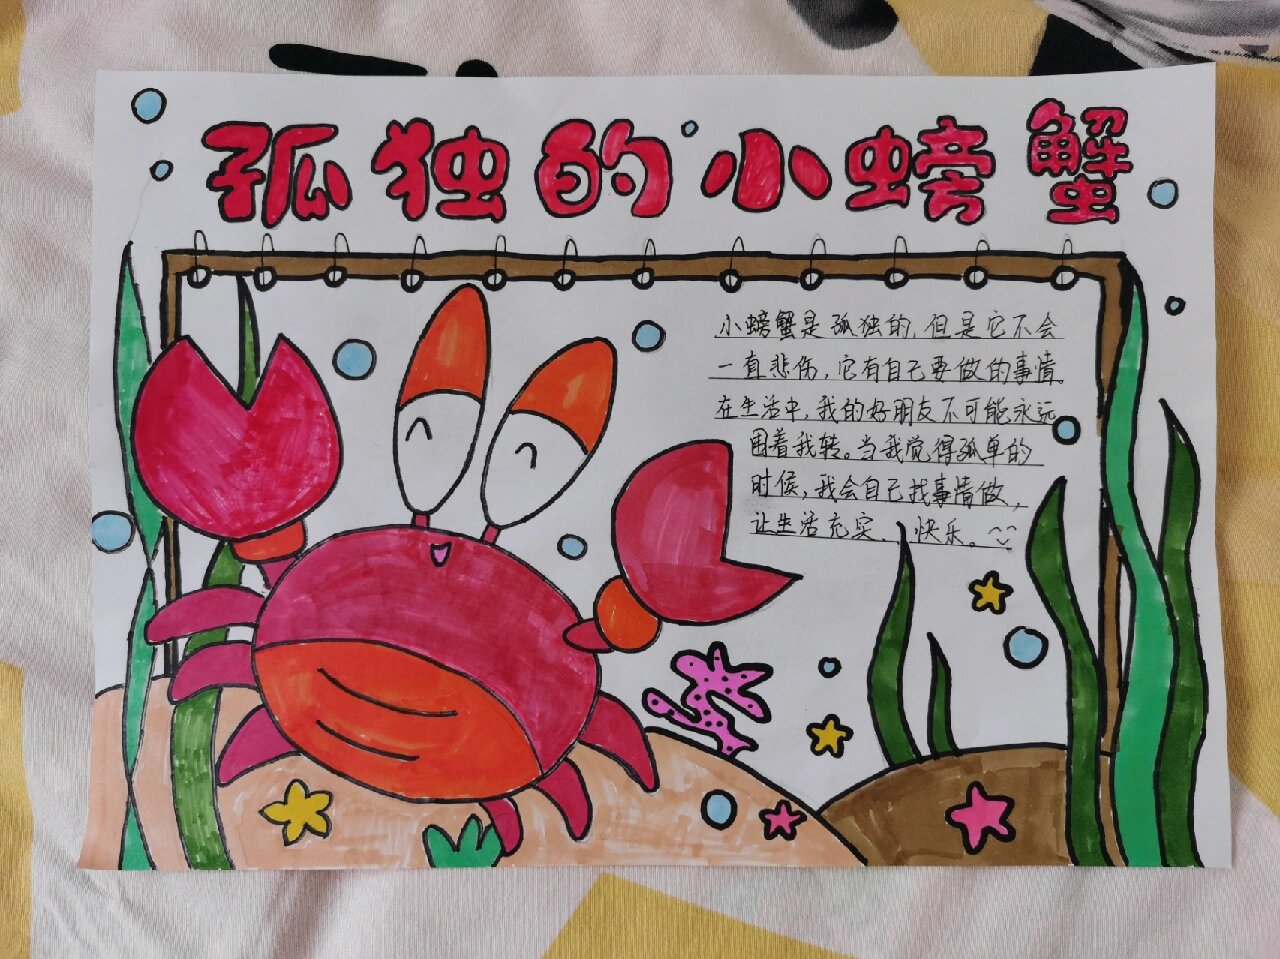 孤独的小螃蟹
小螃蟹是孤独的,但是它不会
一直悲伤,它有自己要做的事情。
在生活中,我的好朋友不可能永远
围着我转。当我觉得孤单的
时候,我会自己找事情做,
让生活充实、快乐。